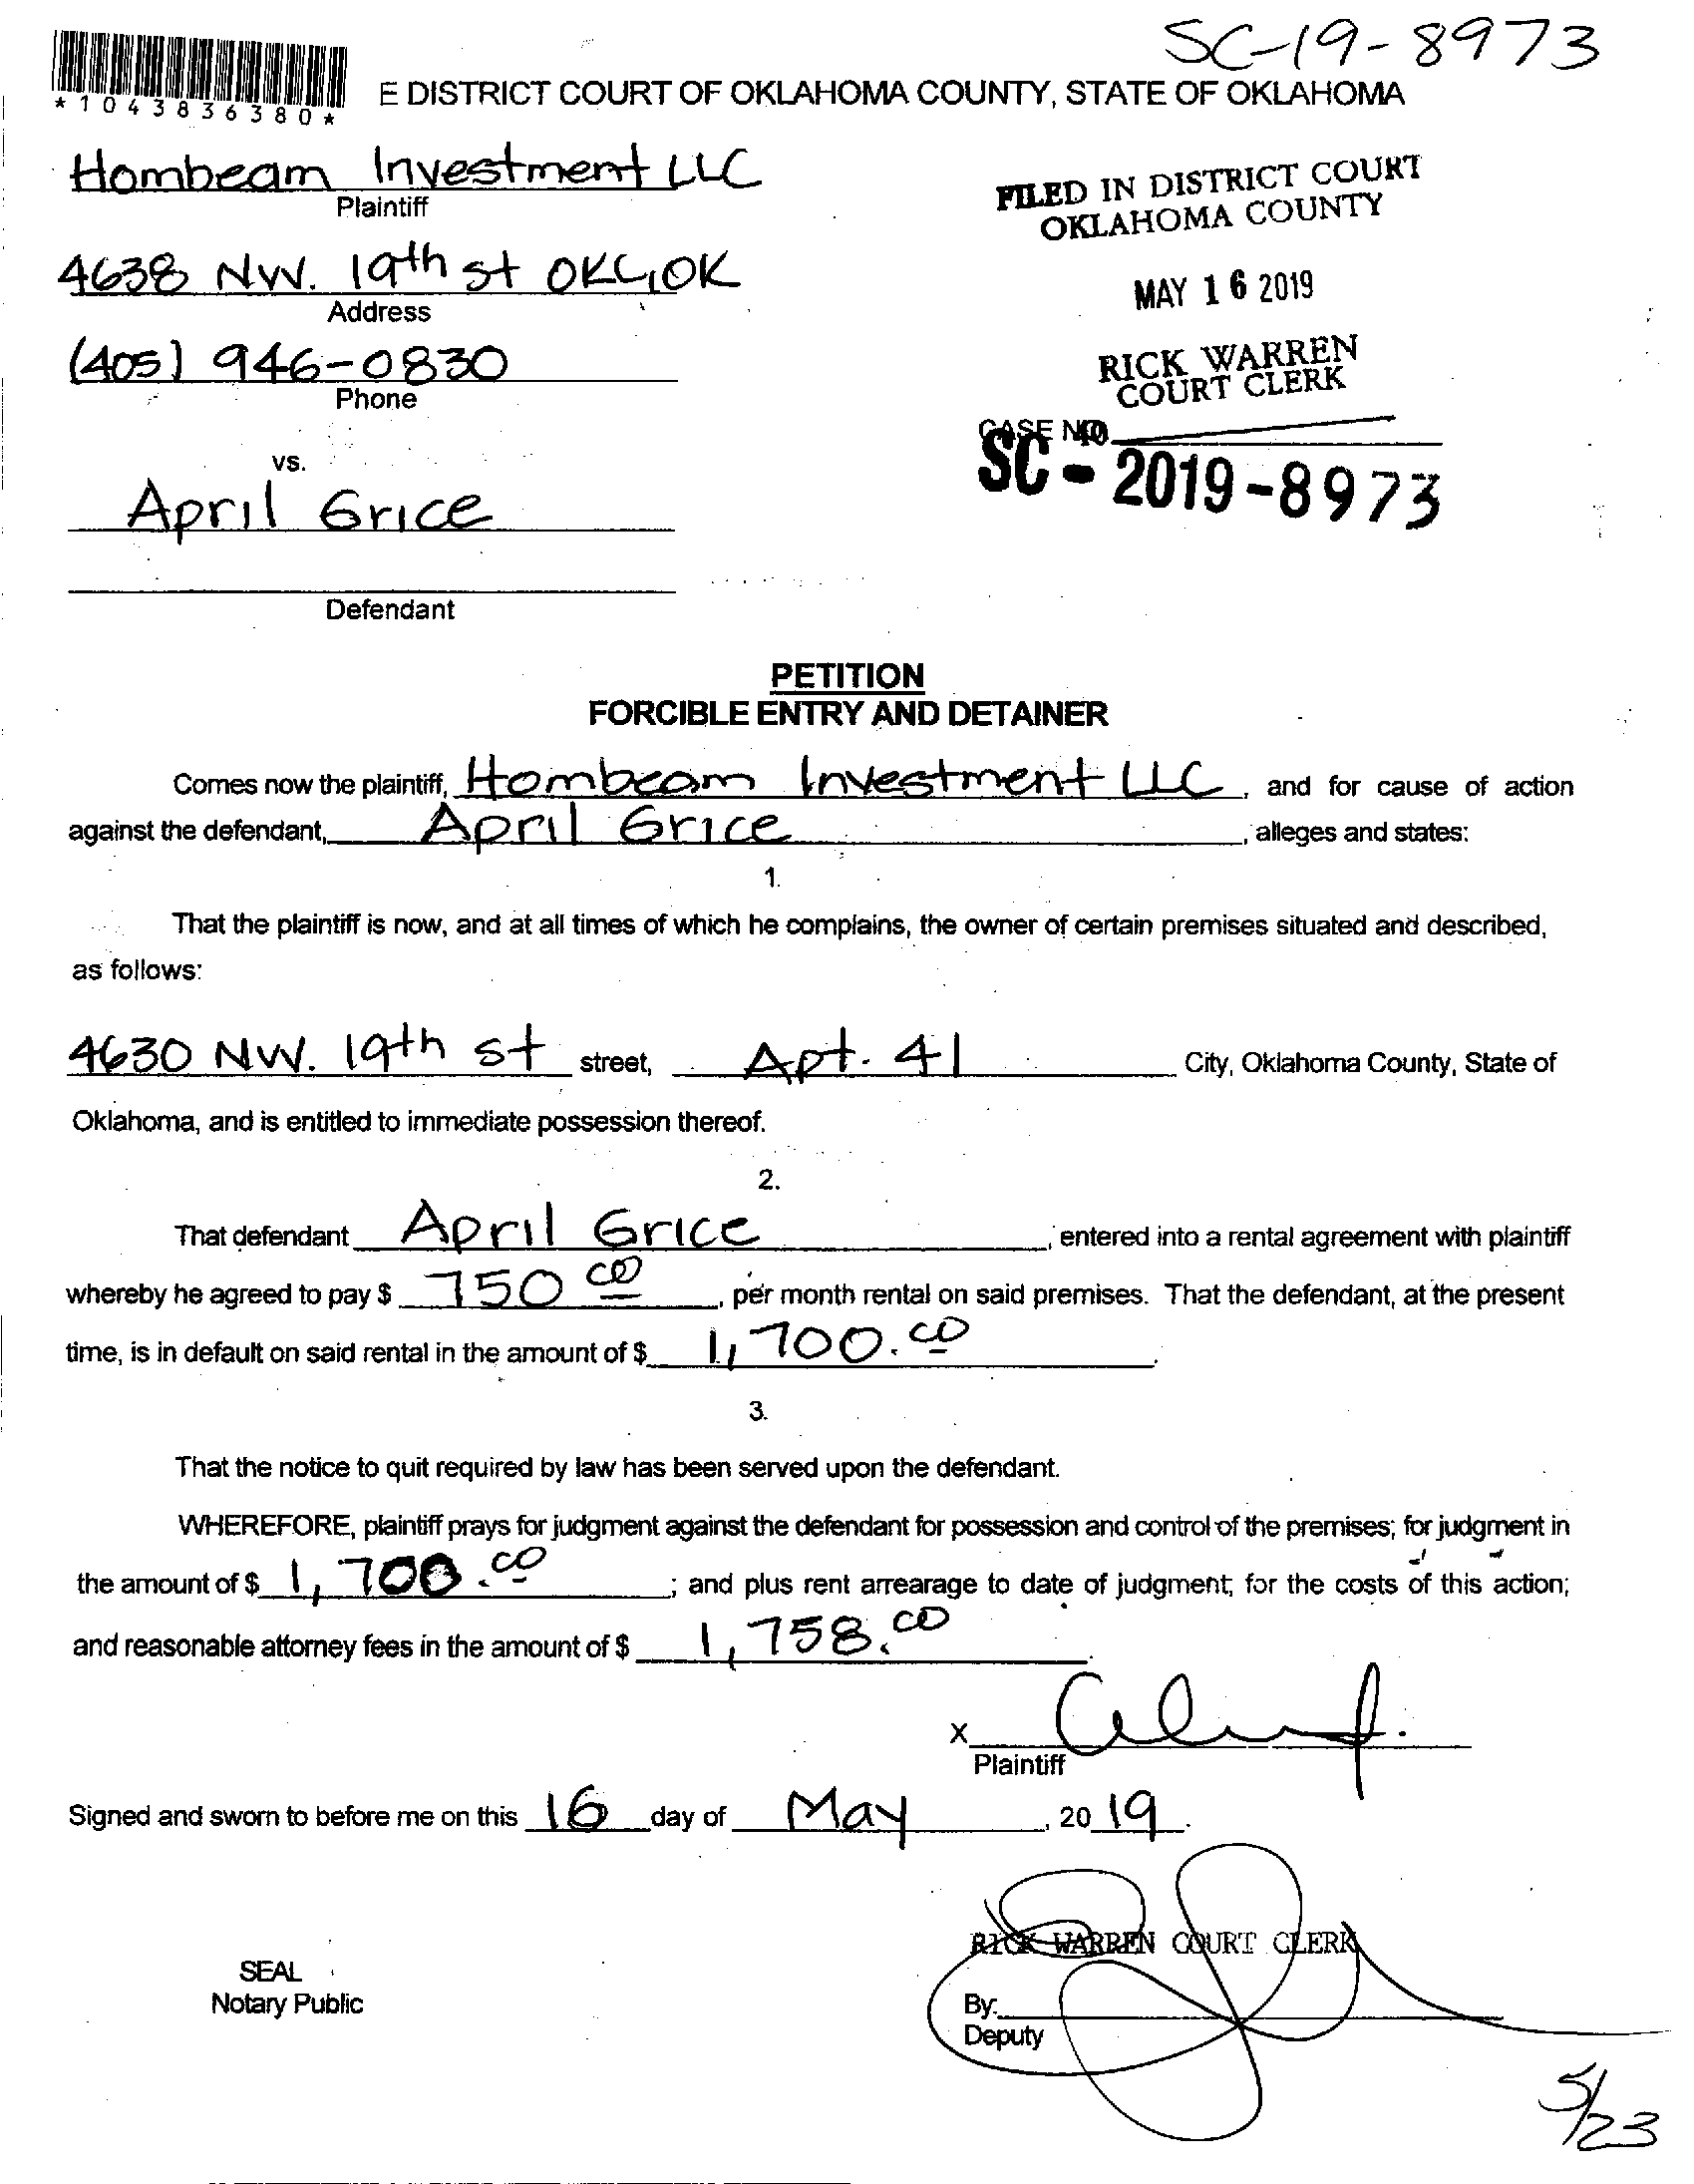 SC-19-8973
*1043836380*
E DISTRICT COURT OF OKLAHOMA COUNTY, STATE OF OKLAHOMA
Hombeam Investment LLC
Plaintiff
FILED IN DISTRICT COURT
OKLAHOMA COUNTY
4638 NW. 19th st OKC, OK
Address
MAY 16 2019
(405) 946-0830
Phone
RICK WARREN
COURT CLERK
CASE NO.
SC - 2019-8973
vs.
April Grice
Defendant
PETITION
FORCIBLE ENTRY AND DETAINER
Comes now the plaintiff, Hombeam Investment LLC, and for cause of action
against the defendant, April Grice, alleges and states:
1.
That the plaintiff is now, and at all times of which he complains, the owner of certain premises situated and described,
as follows:
4630 NW. 19th st street, Apt. 41 City, Oklahoma County, State of
Oklahoma, and is entitled to immediate possession thereof.
2.
That defendant April Grice, entered into a rental agreement with plaintiff
whereby he agreed to pay $ 750 00, per month rental on said premises. That the defendant, at the present
time, is in default on said rental in the amount of $ 1,700.00.
3.
That the notice to quit required by law has been served upon the defendant.
WHEREFORE, plaintiff prays for judgment against the defendant for possession and control of the premises; for judgment in
the amount of $ 1,700.00; and plus rent arrearage to date of judgment; for the costs of this action;
and reasonable attorney fees in the amount of $ 1,758.00.
X
Plaintiff
Signed and sworn to before me on this 16 day of May, 2019.
RICK WARREN COURT CLERK
SEAL
Notary Public
By:
Deputy
5/23